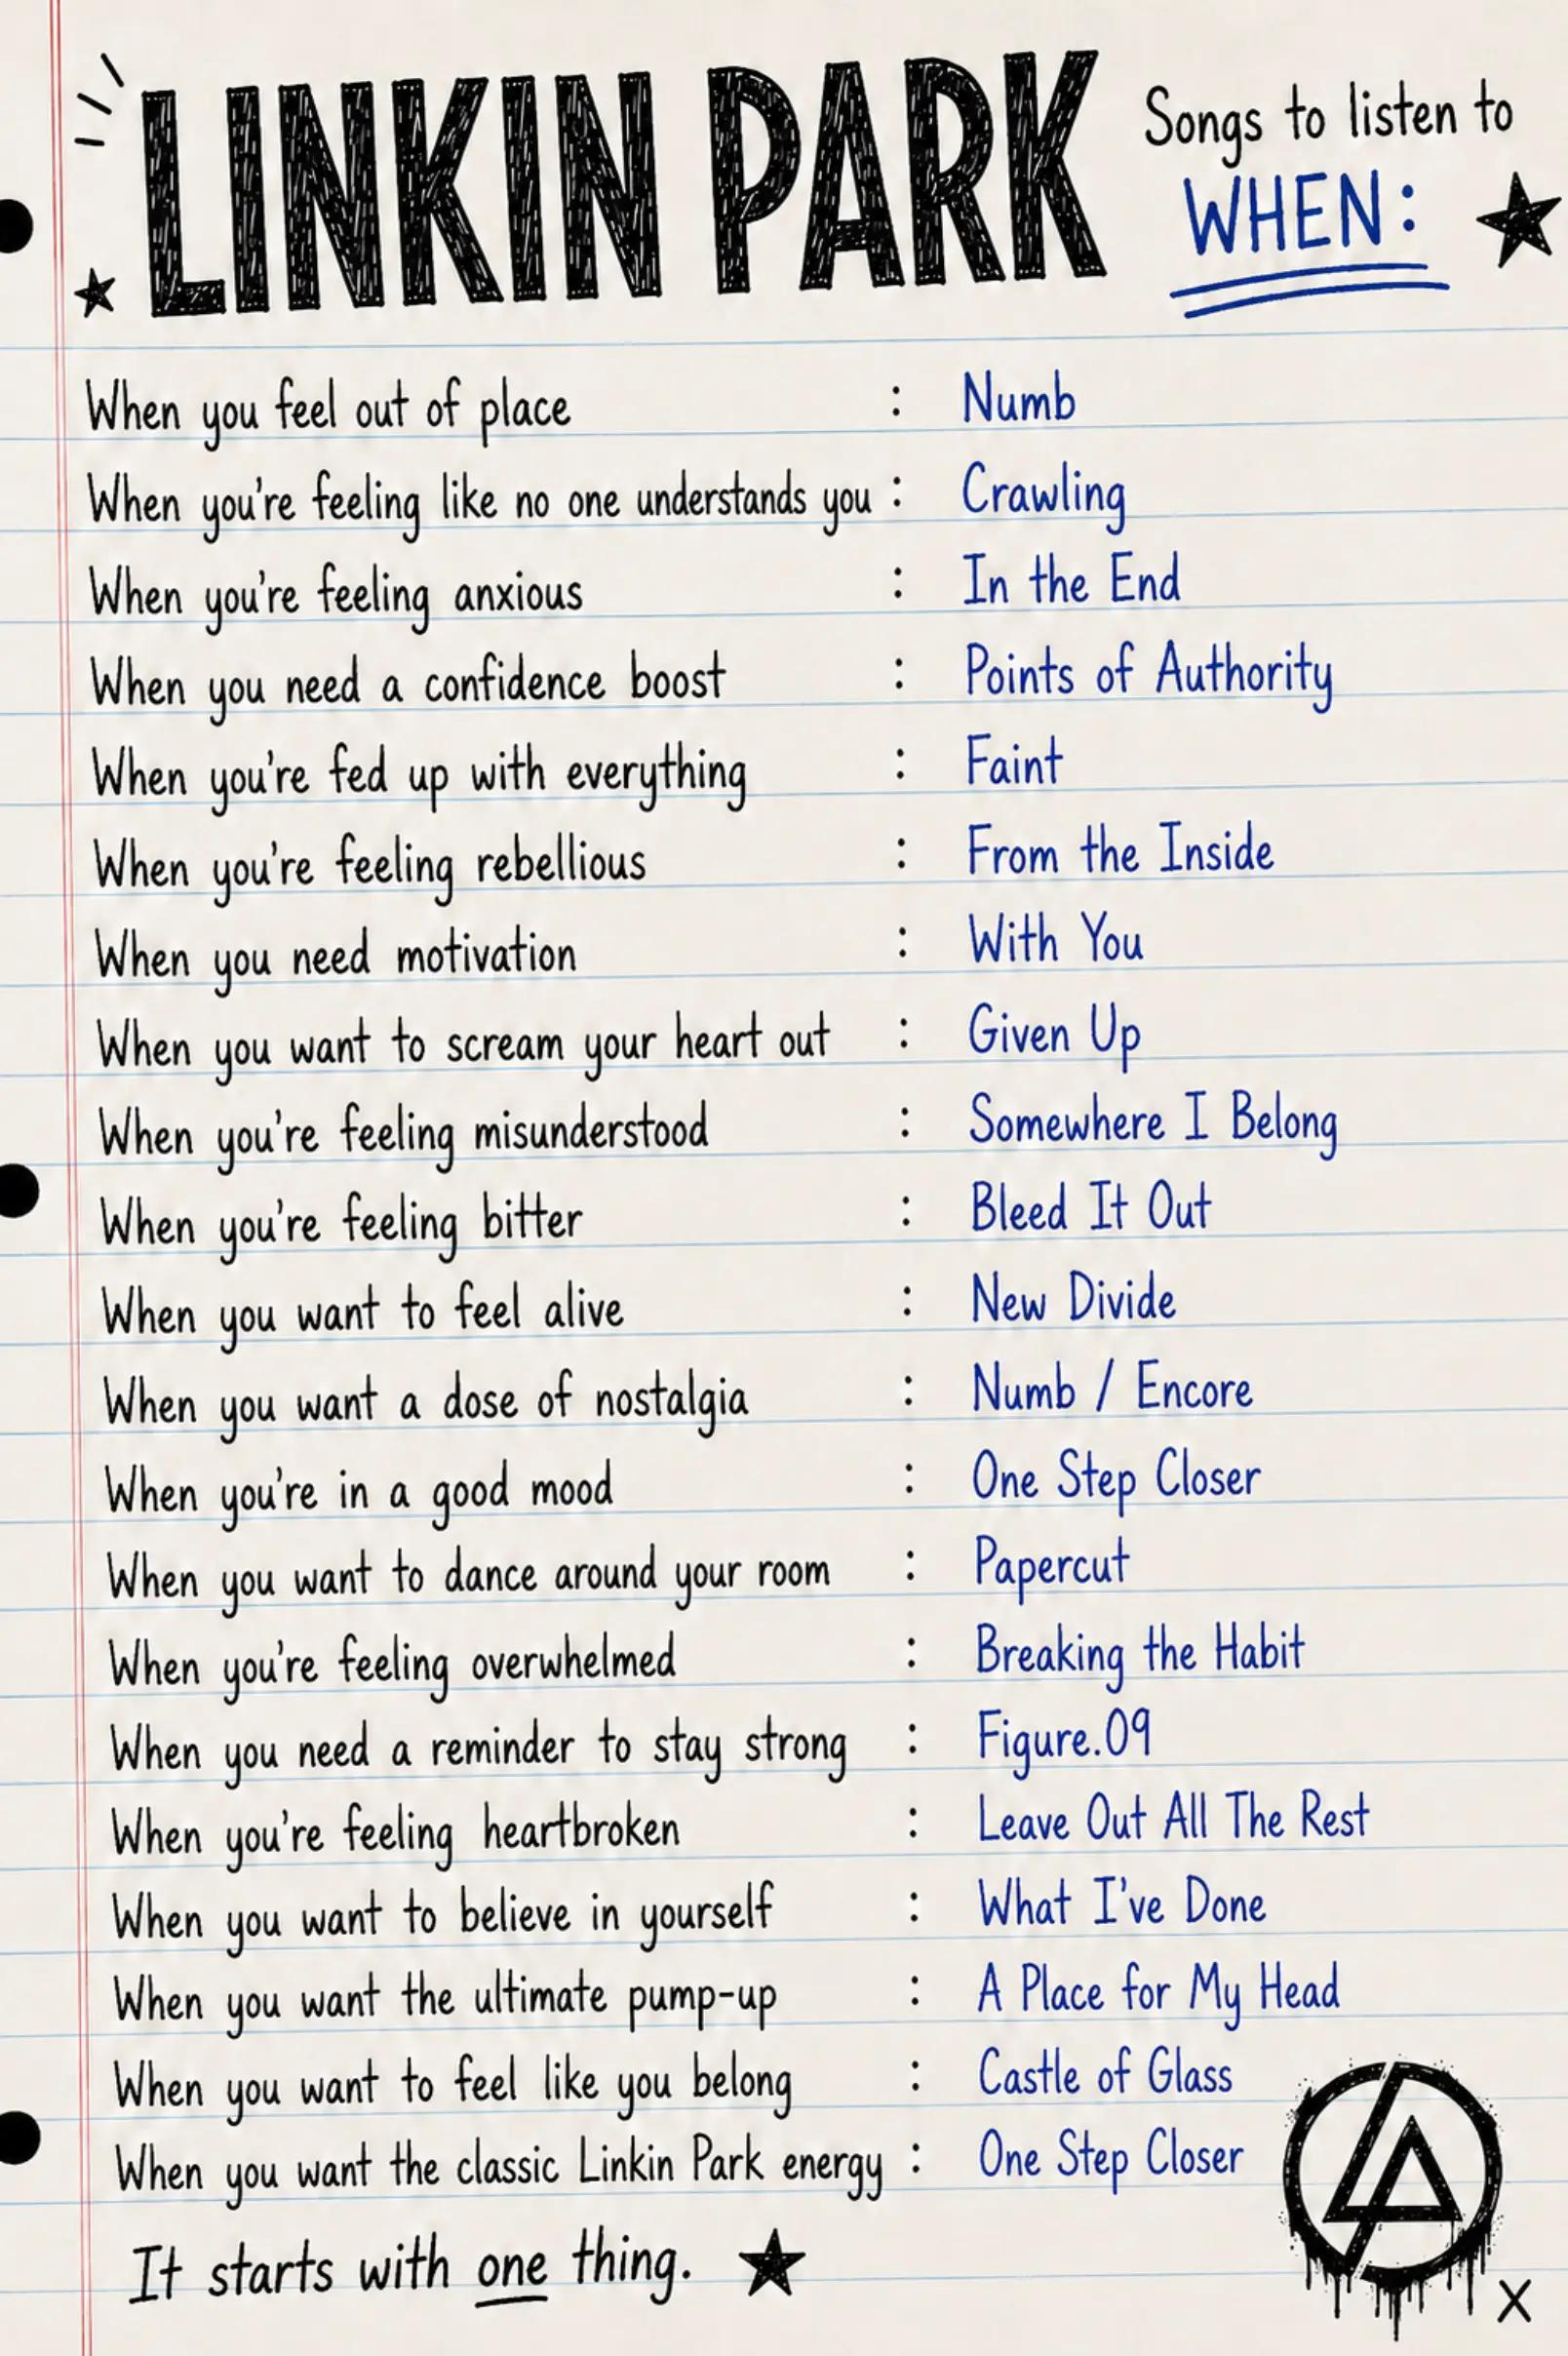 LINKIN PARK
Songs to listen to
WHEN:
When you feel out of place : Numb
When you're feeling like no one understands you : Crawling
When you're feeling anxious : In the End
When you need a confidence boost : Points of Authority
When you're fed up with everything : Faint
When you're feeling rebellious : From the Inside
When you need motivation : With You
When you want to scream your heart out : Given Up
When you're feeling misunderstood : Somewhere I Belong
When you're feeling bitter : Bleed It Out
When you want to feel alive : New Divide
When you want a dose of nostalgia : Numb / Encore
When you're in a good mood : One Step Closer
When you want to dance around your room : Papercut
When you're feeling overwhelmed : Breaking the Habit
When you need a reminder to stay strong : Figure.09
When you're feeling heartbroken : Leave Out All The Rest
When you want to believe in yourself : What I've Done
When you want the ultimate pump-up : A Place for My Head
When you want to feel like you belong : Castle of Glass
When you want the classic Linkin Park energy : One Step Closer
It starts with one thing.
X